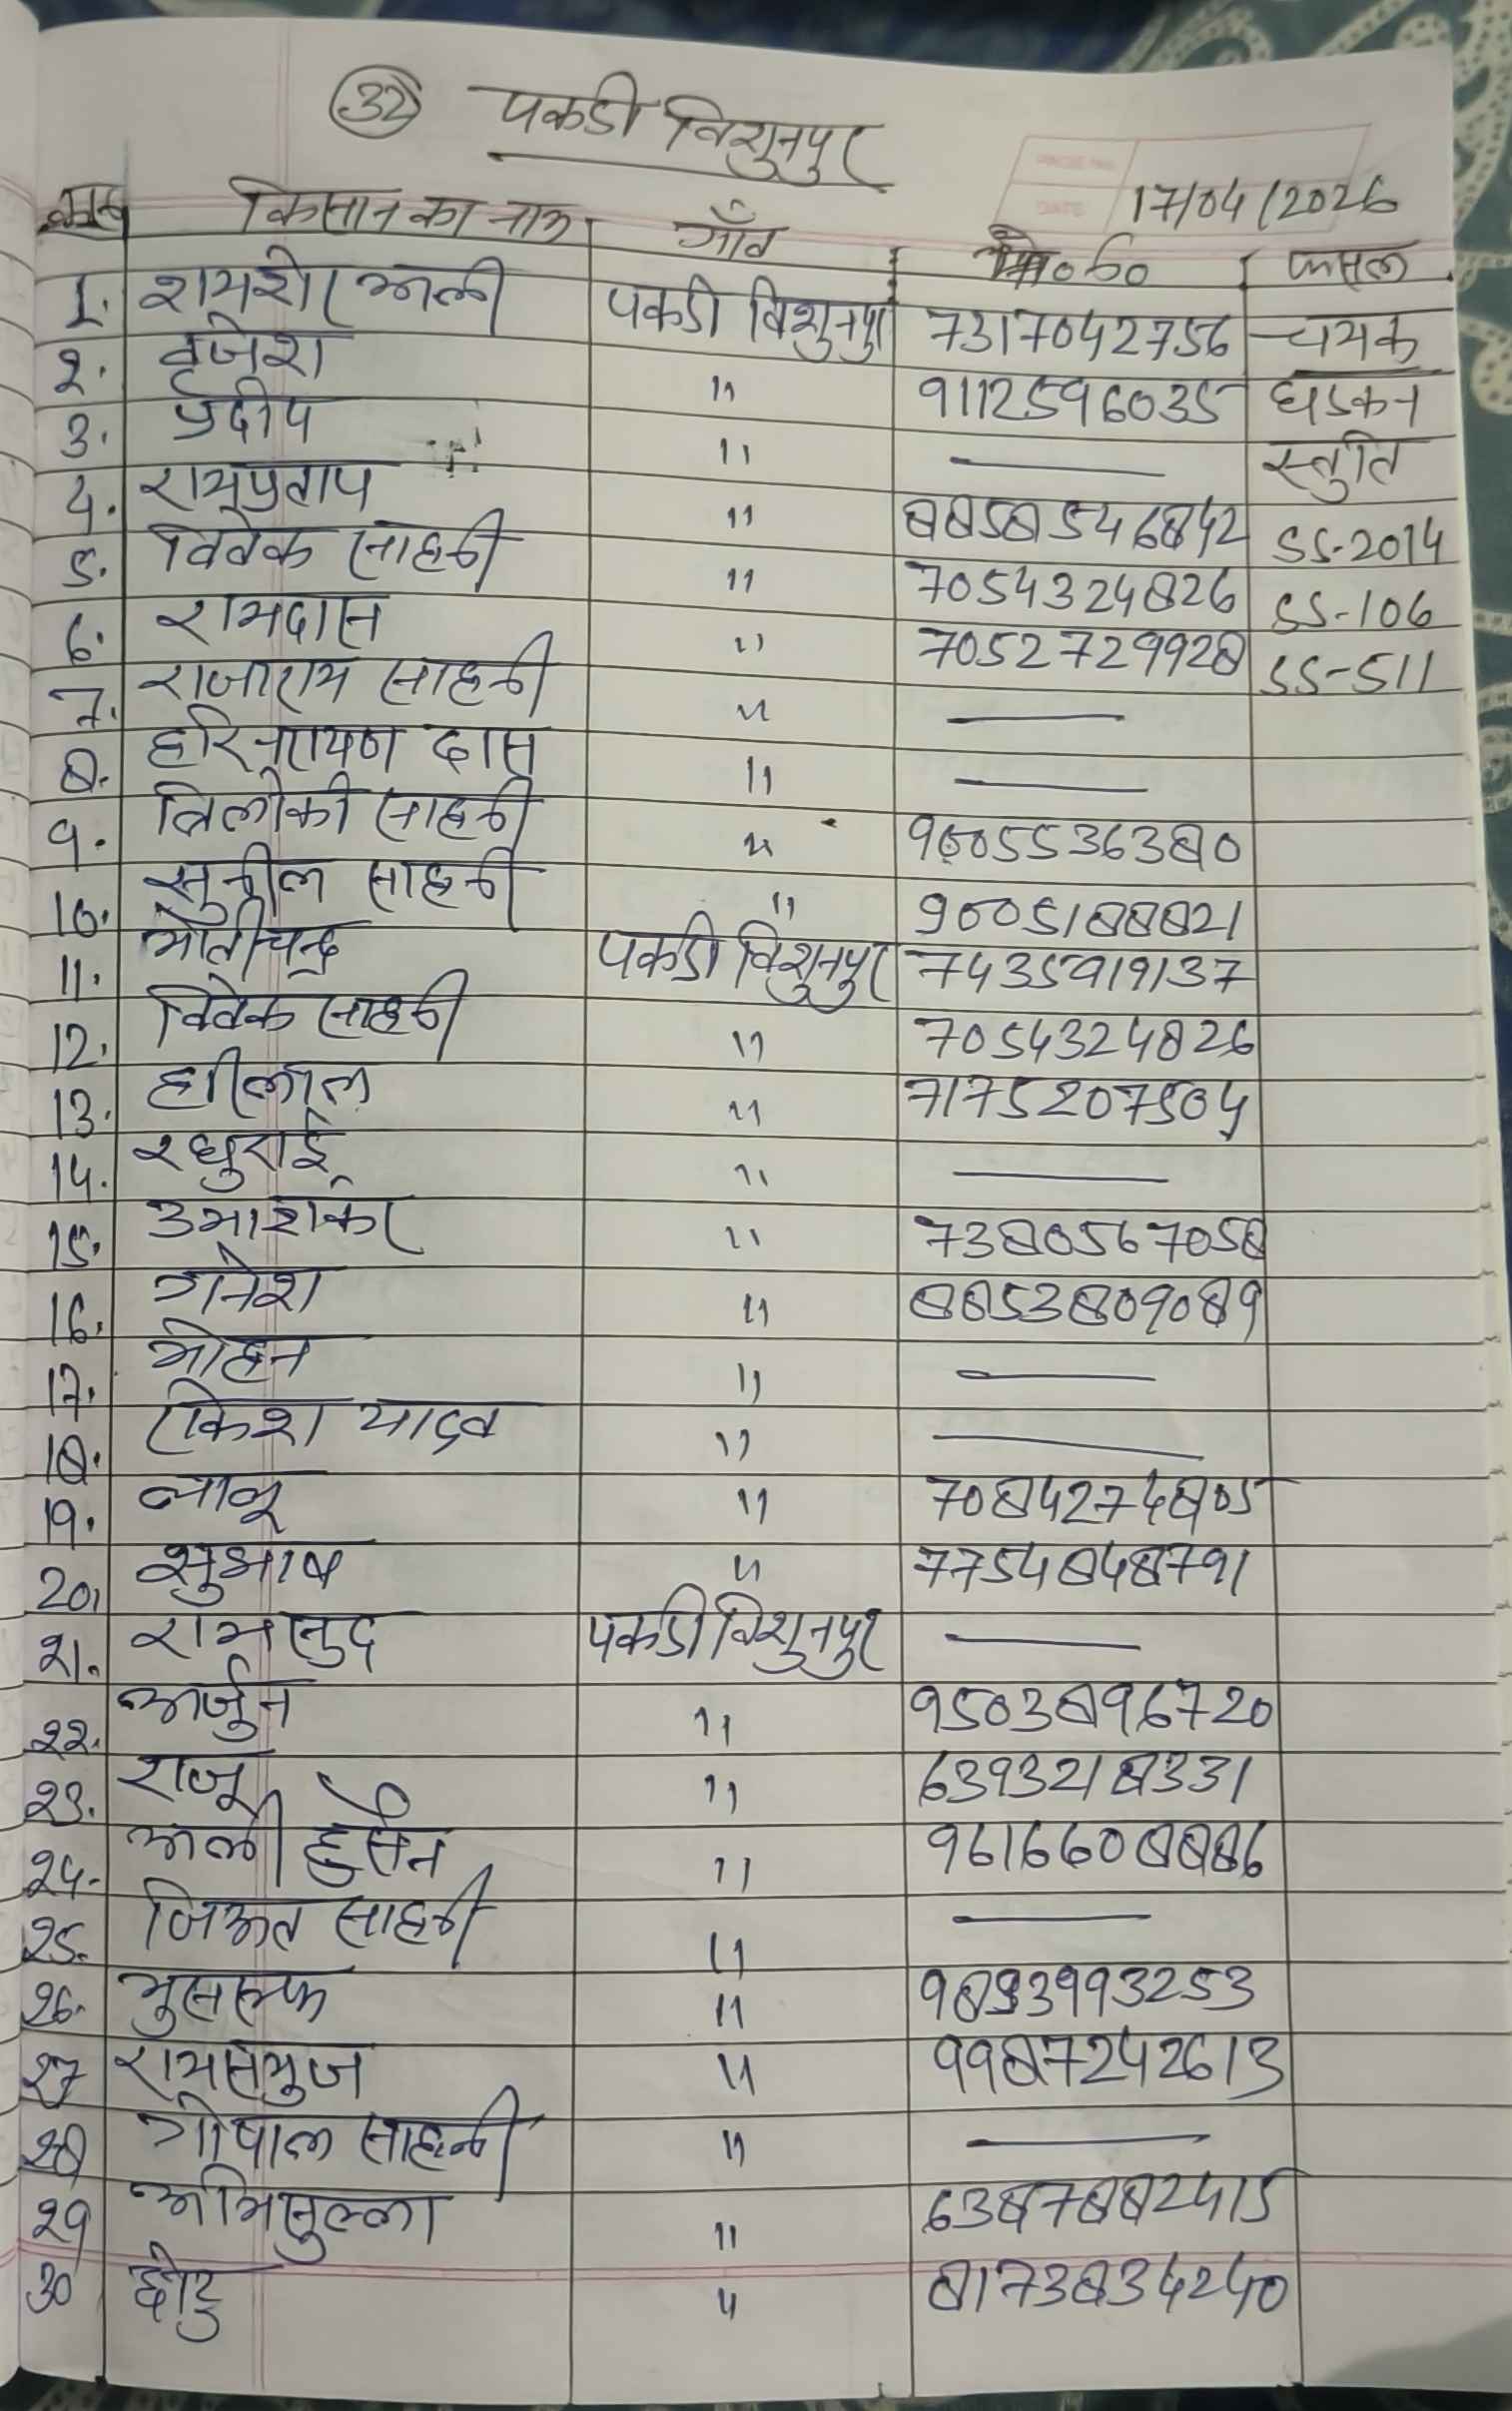 32 पकडी विशुनपुर
17/04/2026
क्रम किसान का नाम गाँव मो० न० फसल
1. शमशेर अली पकडी विशुनपुर 7317042756 चमक
2. वृजेश " 9112596035 धडकन
3. प्रदीप " — स्तुति
4. रामप्रताप " 8858546842 SS-2014
5. विवेक साहनी " 7054324826 SS-106
6. रामदास " 7052729928 SS-511
7. राजाराम साहनी " —
8. हरिनरायण दास " —
9. त्रिलोकी साहनी " 9005536380
10. सुनील साहनी " 9005188821
11. मोतीचन्द्र पकडी विशुनपुर 7435919137
12. विवेक साहनी " 7054324826
13. हरीलाल " 7175207504
14. रघुराई " —
15. उमाशंकर " 7380567058
16. गनेश " 8853809089
17. मोहन " —
18. राकेश यादव " —
19. लालू " 7084274805
20. सुभाष " 7754848791
21. रामसुद पकडी विशुनपुर —
22. अर्जुन " 9503896720
23. राजू " 6393218331
24. अली हुसैन " 9616608886
25. जिअत साहनी " —
26. मुसरूफ " 9893993253
27 रामसमुज " 9987242613
28 गोपाल साहनी " —
29 अमिसुल्ला " 6387882415
30 छोटु " 8173834240